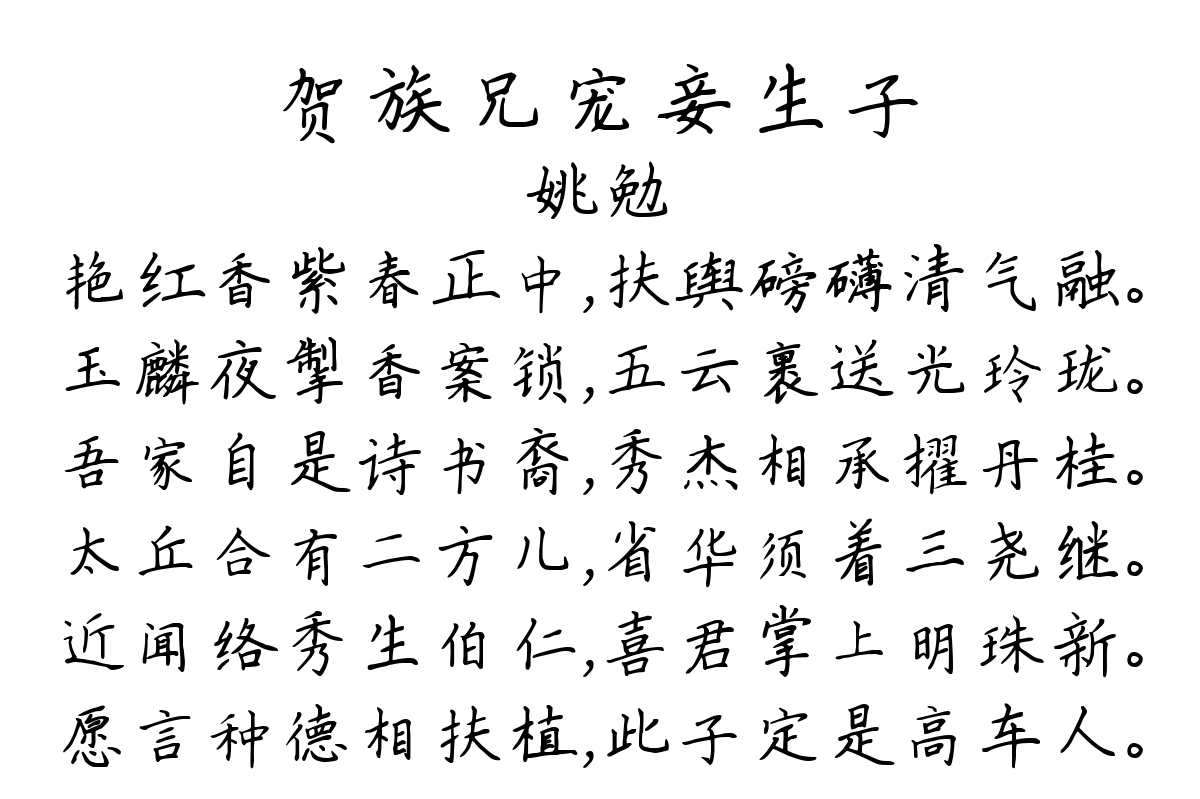 贺族兄宠妾生子
姚勉
艳红香紫春正中,扶舆磅礴清气融。
玉麟夜掣香案锁,五云裹送光玲珑。
吾家自是诗书裔,秀杰相承擢丹桂。
太丘合有二方儿,省华须着三尧继。
近闻络秀生伯仁,喜君掌上明珠新。
愿言种德相扶植,此子定是高车人。